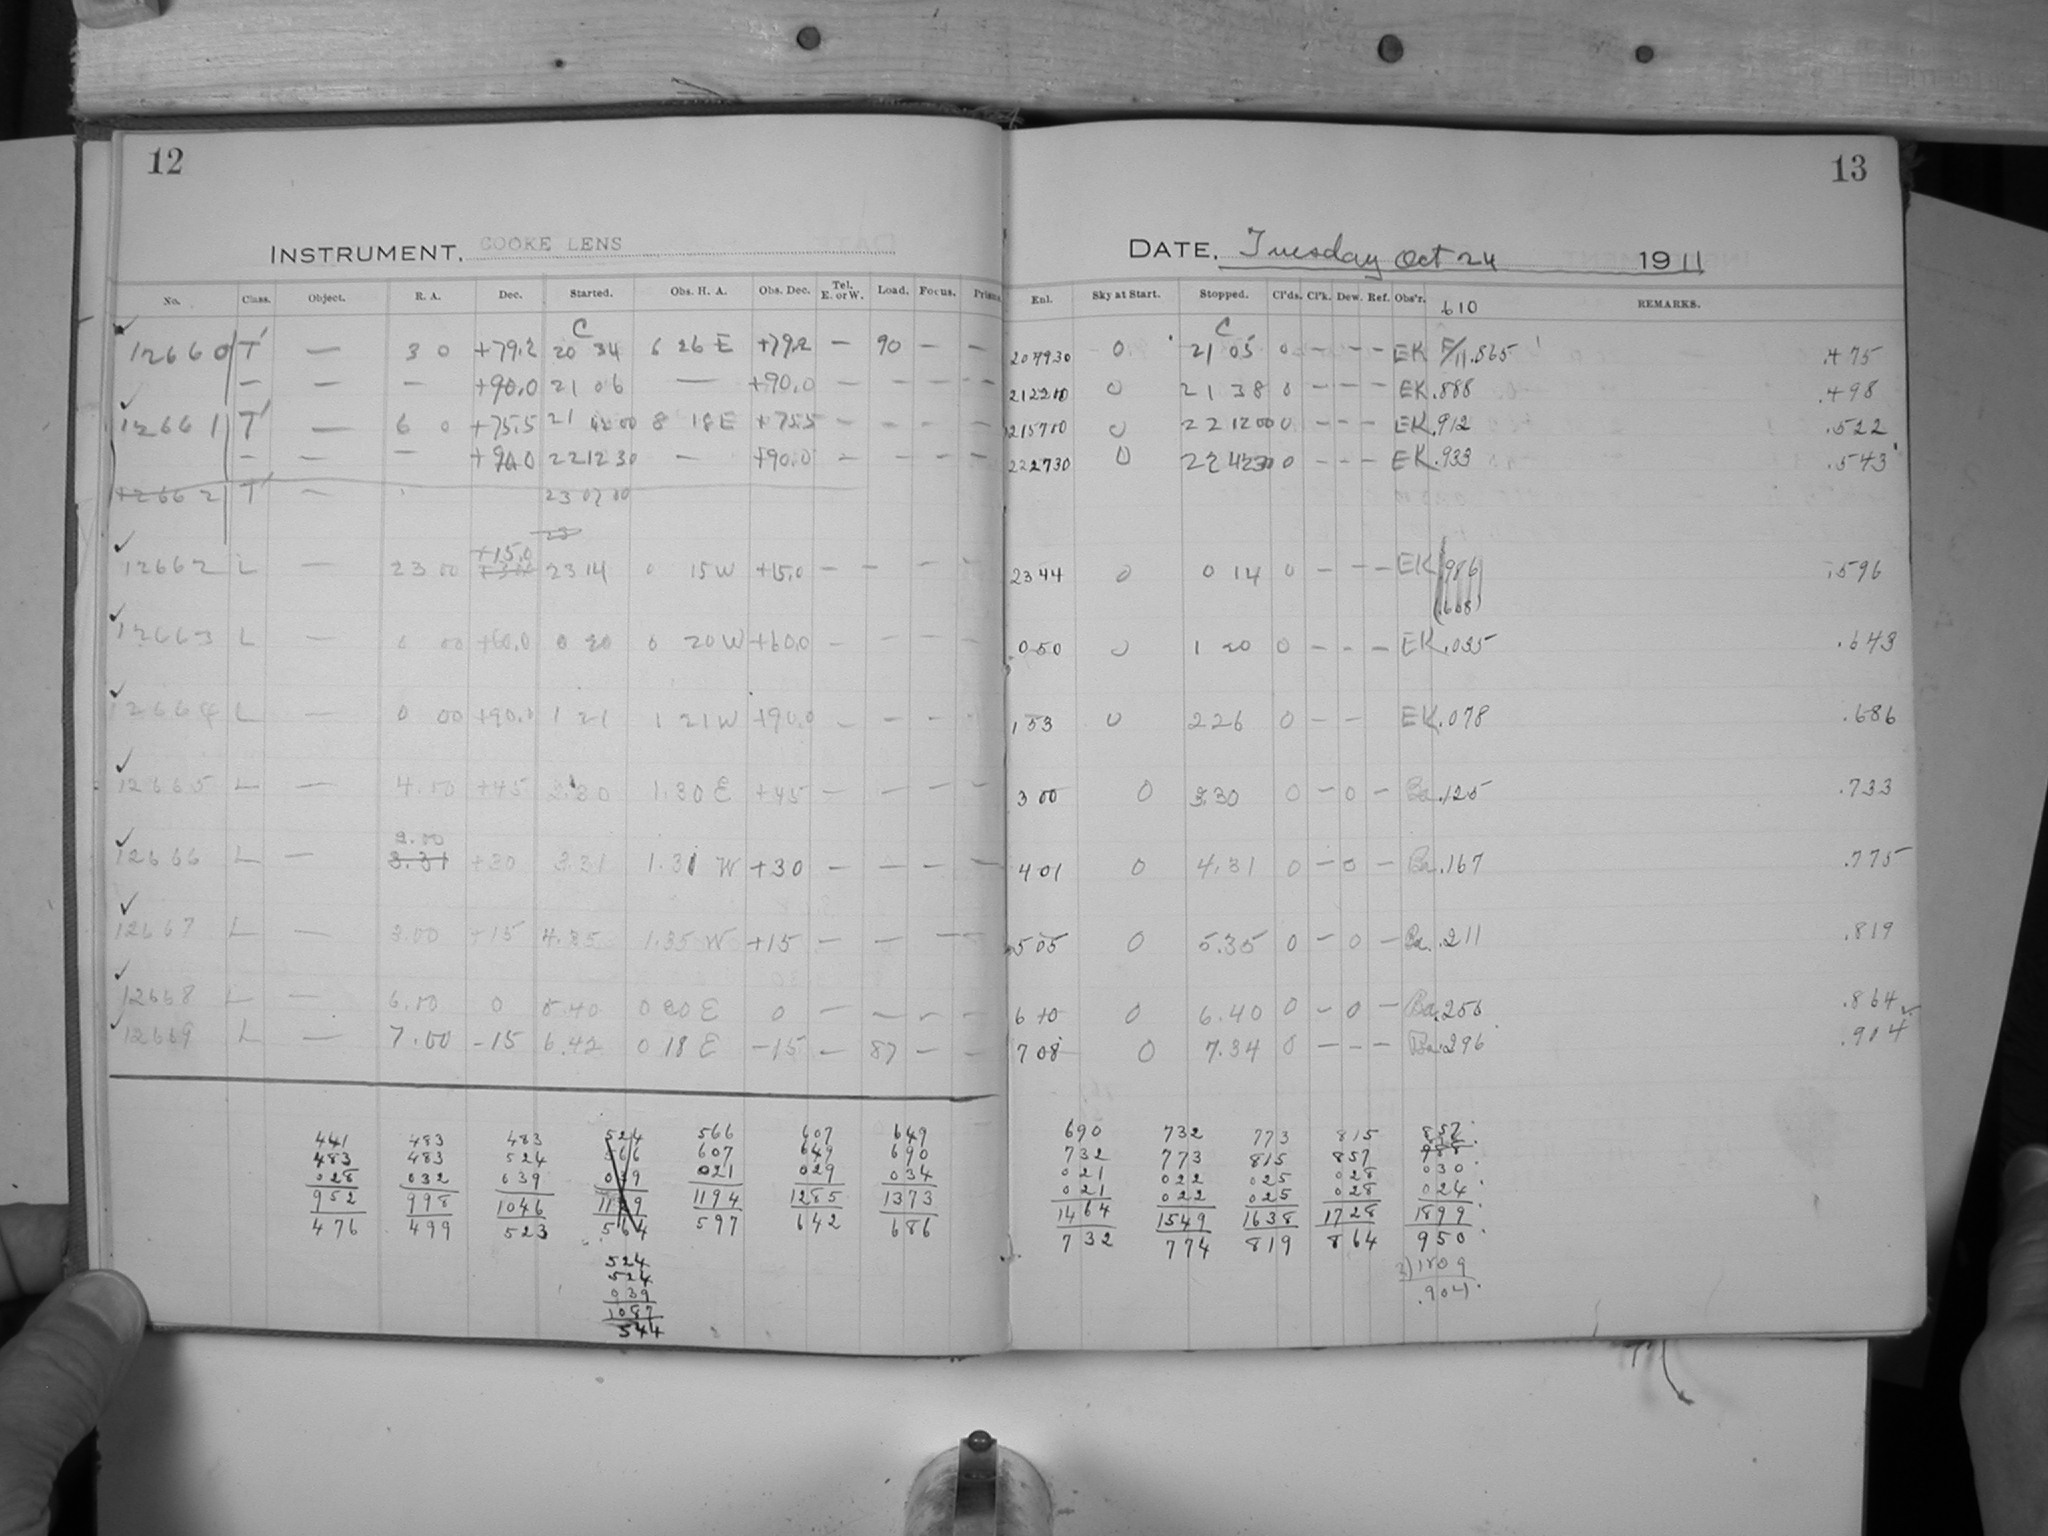 12
13
INSTRUMENT. COOKE LENS
DATE. Tuesday Oct 24 1911
No. Class. Object. R. A. Dec. Started. Obs. H. A. Obs. Dec. Tel. E. or W. Load. Focus. Prism. Exl. Sky at Start. Stopped. Cl'ds. Cl'k. Dew. Ref. Obs'r. 610 REMARKS.
C C
12660 T' — 3 0 +79.2 20 34 6 26 E +79.2 — 90 — — 204930 0 21 05 0 — — — EK F/11.865 .475
— — — +90.0 21 06 — +90.0 — — — — 212210 0 21 38 0 — — — EK .888 .498
12661 T' — 6 0 +75.5 21 4200 8 18 E +75.5 — — — — 215700 0 22 1200 0 — — — EK .912 .522
— — — +90.0 22 12 30 — +90.0 — — — — 222730 0 22 4230 0 — — — EK .933 .543
12662 T' — 23 07 00
23
+15.0
12662 L — 23 00 +30.0 23 14 0 15 W +15.0 — — — — 23 44 0 0 14 0 — — — EK .986 .596
(.608)
12663 L — 0 00 +60.0 0 20 0 20 W +60.0 — — — — 0 50 0 1 20 0 — — — EK .035 .643
12664 L — 0 00 +90.0 1 21 1 21 W +90.0 — — — — 1 53 0 2 26 0 — — EK .078 .686
12665 L — 4.00 +45 2.30 1.30 E +45 — — — — 3 00 0 3.30 0 — 0 — Ba .125 .733
2.00
12666 L — 3.31 +30 3.31 1.31 W +30 — — — — 4 01 0 4.31 0 — 0 — Ba .167 .775
12667 L — 3.00 +15 4.35 1.35 W +15 — — — — 5 05 0 5.35 0 — 0 — Ba .211 .819
12668 L — 6.00 0 5.40 0 20 E 0 — — — — 6 10 0 6.40 0 — 0 — Ba .256 .864
12669 L — 7.00 -15 6.42 0 18 E -15 — 87 — — 7 08 0 7.34 0 — — — Ba .296 .904
441 483 483 524 566 607 649 690 732 773 815 857
483 483 524 566 607 649 690 732 773 815 857 988
028 032 039 039 021 029 034 021 022 025 028 030
021 022 025 028 024
952 998 1046 1129 1194 1285 1373 1464 1549 1638 1728 1899
476 499 523 564 597 642 686 732 774 819 864 950
524 2)1809
524 .904
039
1087
544